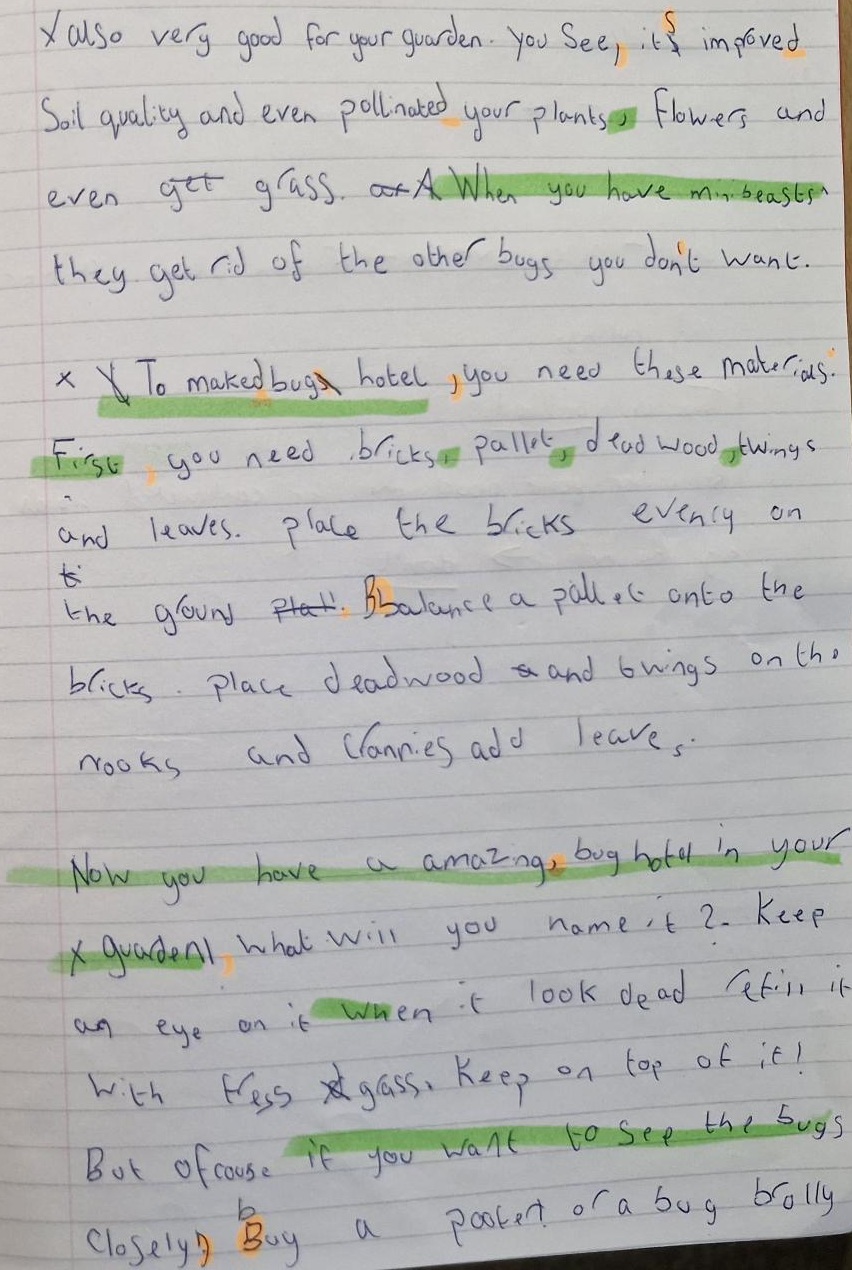 X also very good for your guarden. You See, it's improved
Soil quality and even pollinated your plants, Flowers and
even get grass. at A When you have minibeasts
they get rid of the other bugs you don't want.
x To maked bugs hotel, you need these materials.
First, you need bricks, pallet, dead wood, twings
and leaves. place the bricks evenly on
t
the ground Plat. Bbalance a pallet onto the
bricks. place deadwood a and twings on the
nooks and Crannies add leaves.
Now you have a amazing, bug hotel in your
x guarden, What will you name it?. Keep
an eye on it when it look dead refill it
With fress grass. Keep on top of it!
But ofcouse if you want to see the bugs
b
Closely, Buy a or a bug brolly